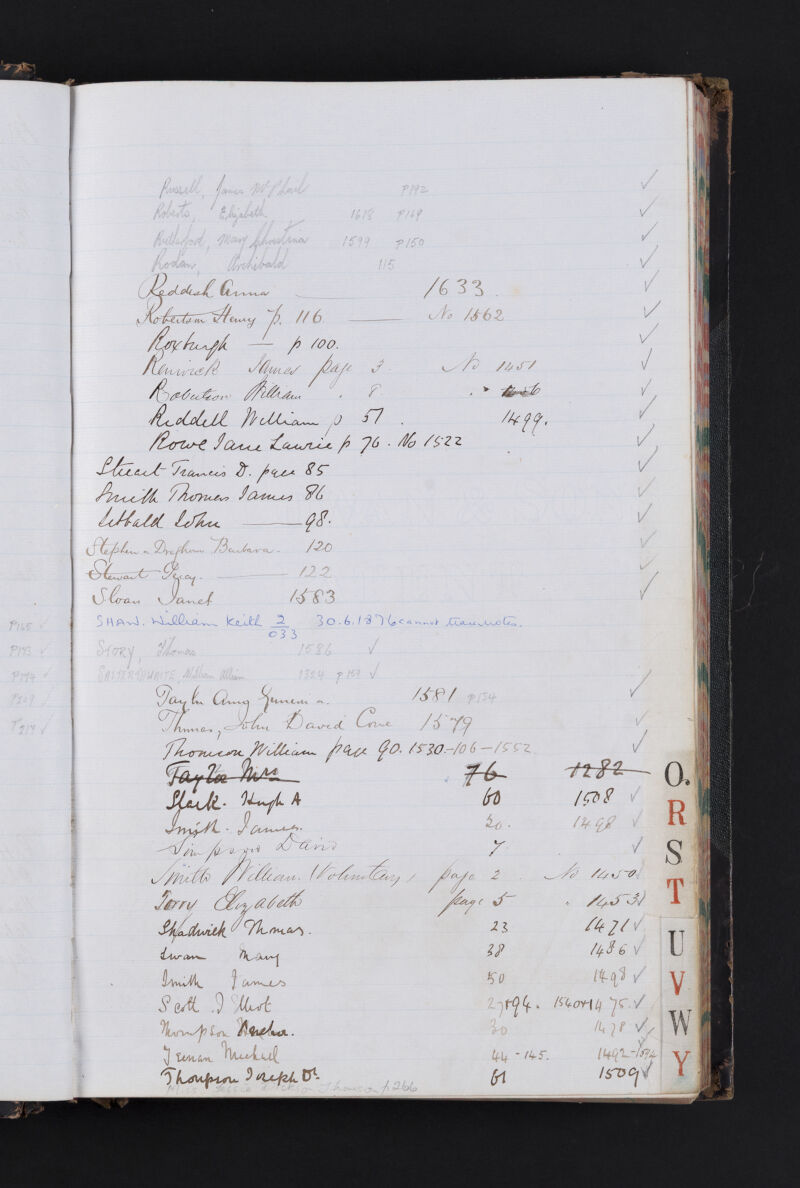 Russell, James McPhail p192
Roberts, Elizabeth 1618 p169
Rutherford, Mary Christina 1599 p150
Rodan, Archibald 115
Reddish Anna 1633
Robertson Henry p. 116 No 1562
Roxburgh — p 100.
Renwick James page 3. No 1451
Robertson William 8
Riddell William p 57. 1499.
Rowe Jane Lawrie p 76. No 1522
Stuart Francis D. page 85
Smith Thomas James 86
Sibbald John — 98.
Stephen Barbara. 120
Stewart 122
Sloan Janet 1583
SHAW. William Keith 2/033 30.6.1876 cannot trace notes.
p165 STORY, Thomas 1586
p173 SATTERTHWAITE, William 1324 p159
p194
Taylor Amy 1581 p154
Thomas, John David Cone 1579
Thomson William page 90. 1530-106-1552
Taylor Mrs 76 1282
Slack. Hugh A 60 1508
Smith. James. 50. 1498
Simpson David 7.
Smith William (Voluntary) page 2. No 1450
Torry Elizabeth page 5 1453
Shadwick Thomas. 23 1471
Swan Mary 38 1486
Smith James 50 1498
Scott. J 27+94. 1540+1475.
Thompson 30 1478
Michael 44-145. 1492-1594
Thompson Joseph Dr. 61 1509
p. 266
O.
R
S
T
U
V
W
Y